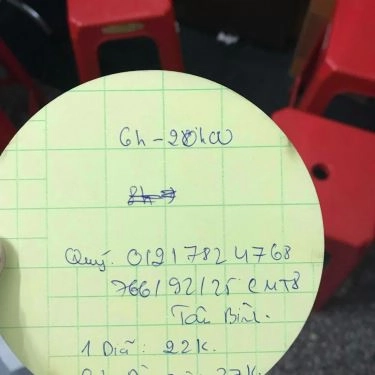 6h - 20h00
Quý. 01217824768
766/92/25 CMT8
Tân Bình.
1 Dĩa: 22K.
27K